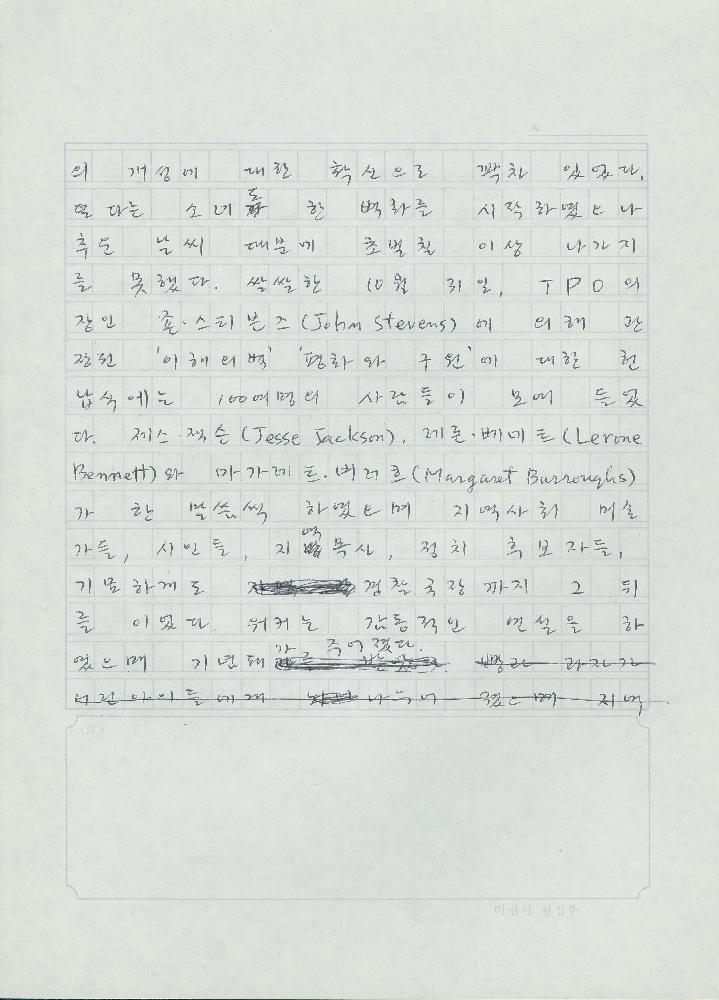 의 개성에 대한 확신으로 꽉차 있었다.
또 다른 소녀도 한 벽화를 시작하였으나
추운 날씨 때문에 초벌칠 이상 나가지
를 못했다. 쌀쌀한 10월 31일, TPO의
장인 죤·스티븐즈(John Stevens)에 의해 관
장된 '이해의벽' '평화와 구원'에 대한 헌
납식에는 100여명의 사람들이 모여 들었
다. 제스·잭슨(Jesse Jackson), 레론·베네트(Lerone
Bennett)와 마가레트·버러흐(Margaret Burroughs)
가 한 말씀씩 하였으며 지역사회 미술
가들, 시인들, 지역목사, 정치 후보자들,
기묘하게도 경찰국장까지 그 뒤
를 이었다. 워커는 감동적인 연설을 하
였으며 기념패가 주어졌다.
어린아이들에게 나누어 줬으며 지역
(註)
미진사 편집부